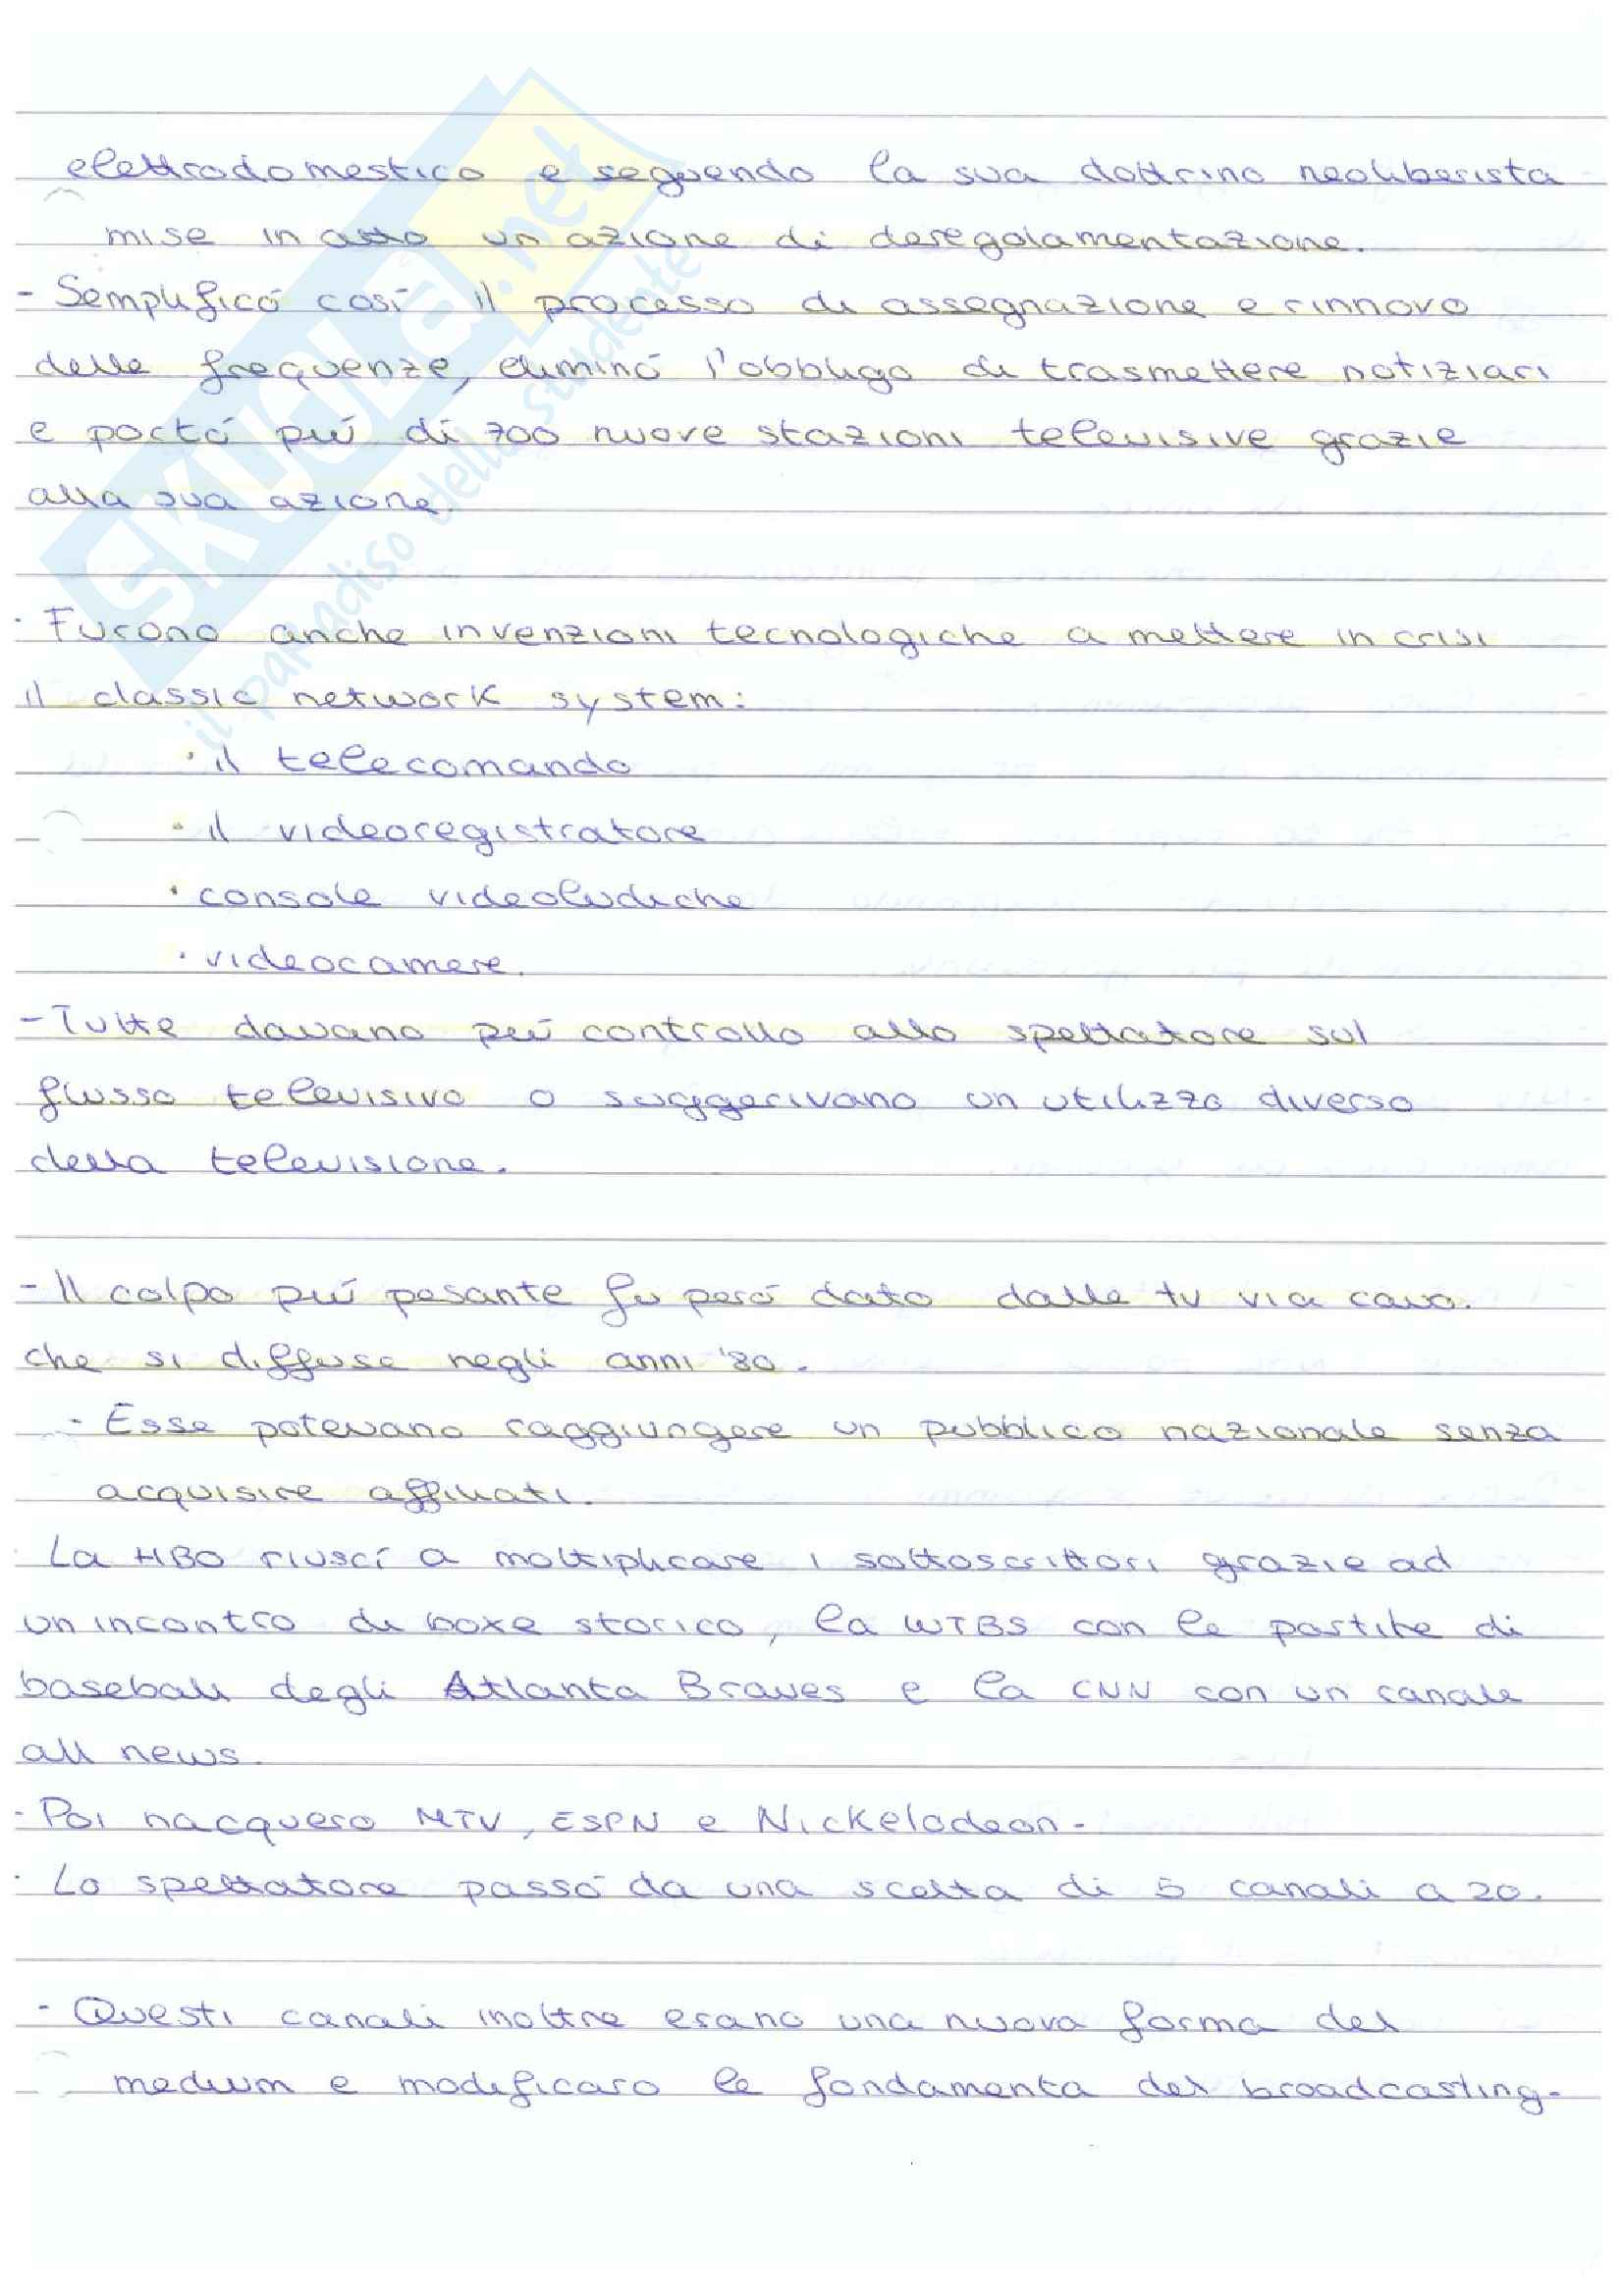 elettrodomestico e seguendo la sua dottrina neoliberista
mise in atto un azione di deregolamentazione.
- Semplificó cosí il processo di assegnazione e rinnovo
delle frequenze, eliminó l'obbligo di trasmettere notiziari
e portó piú di 700 nuove stazioni televisive grazie
alla sua azione.
· Furono anche invenzioni tecnologiche a mettere in crisi
il classic network system:
· il telecomando
· il videoregistratore
· console videoludiche
· videocamere.
- Tutte davano piú controllo allo spettatore sul
flusso televisivo o suggerivano un utilizzo diverso
della televisione.
- Il colpo piú pesante fu peró dato dalle tv via cavo.
che si diffuse negli anni '80.
- Esse potevano raggiungere un pubblico nazionale senza
acquisire affiliati.
· La HBO riuscí a moltiplicare i sottoscrittori grazie ad
un incontro di boxe storico, la WTBS con le partite di
baseball degli Atlanta Braves e la CNN con un canale
all news.
· Poi nacquero MTV, ESPN e Nickelodeon.
· Lo spettatore passó da una scelta di 5 canali a 20.
- Questi canali inoltre erano una nuova forma del
medium e modificaro le fondamenta del broadcasting.
SKUOLA.net
il paradiso dello studente